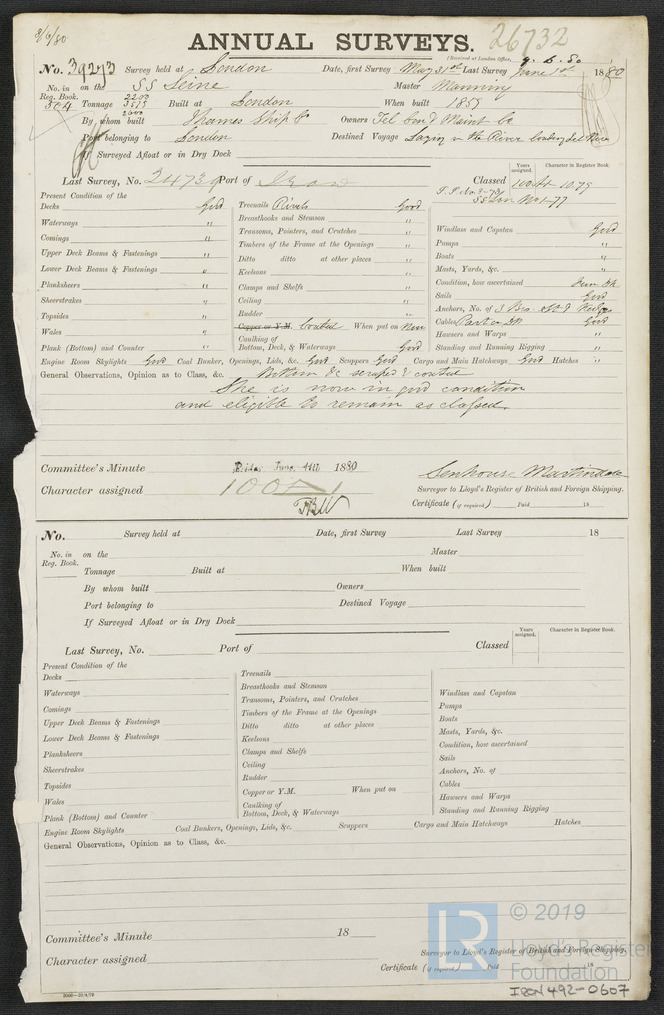 8/6/80
26732
ANNUAL SURVEYS.
(Received at London Office, 9.6.80
No. 39273 Survey held at London Date, first Survey May 31st Last Survey June 1st 1880
No. in Reg. Book. 504 on the SS Seine Master Manning
Tonnage 2200 3515 2600 Built at London When built 185
By whom built Thames Ship Co Owners Tel Con & Maint Co
Port belonging to London Destined Voyage Laying in the River
If Surveyed Afloat or in Dry Dock
Years assigned. Character in Register Book.
Last Survey, No. 24739 Port of Classed 100A1 10.79
No 1-77
Present Condition of the
Decks Good Treenails Rivets Good
Waterways " Breasthooks and Stemson " Windlass and Capstan Good
Comings " Transoms, Pointers, and Crutches " Pumps "
Upper Deck Beams & Fastenings " Timbers of the Frame at the Openings " Boats "
Lower Deck Beams & Fastenings " Ditto ditto at other places " Masts, Yards, &c. "
Planksheers " Keelsons " Condition, how ascertained from Dk
Sheerstrakes " Clamps and Shelfs " Sails Good
Topsides " Ceiling " Anchors, No. of 3 Bro. St & Kedges
Wales " Rudder " Cables Part on Dk Good
Copper or Y.M. Coated When put on New Hawsers and Warps "
Plank (Bottom) and Counter " Caulking of Bottom, Deck, & Waterways Good Standing and Running Rigging "
Engine Room Skylights Good Coal Bunkers, Openings, Lids, &c. Good Scuppers Good Cargo and Main Hatchways Good Hatches "
General Observations, Opinion as to Class, &c. Bottom &c scraped & coated
She is now in good condition
and eligible to remain as classed.
Committee's Minute Friday June 4th 1880
Character assigned 100A1
Senhouse Martindale
Surveyor to Lloyd's Register of British and Foreign Shipping.
Certificate (if required) Paid 18
No. Survey held at Date, first Survey Last Survey 18
No. in Reg. Book. on the Master
Tonnage Built at When built
By whom built Owners
Port belonging to Destined Voyage
If Surveyed Afloat or in Dry Dock
Years assigned. Character in Register Book.
Last Survey, No. Port of Classed
Present Condition of the
Decks Treenails
Waterways Breasthooks and Stemson Windlass and Capstan
Comings Transoms, Pointers, and Crutches Pumps
Upper Deck Beams & Fastenings Timbers of the Frame at the Openings Boats
Lower Deck Beams & Fastenings Ditto ditto at other places Masts, Yards, &c.
Planksheers Keelsons Condition, how ascertained
Sheerstrakes Clamps and Shelfs Sails
Topsides Ceiling Anchors, No. of
Wales Rudder Cables
Copper or Y.M. When put on Hawsers and Warps
Plank (Bottom) and Counter Caulking of Bottom, Deck, & Waterways Standing and Running Rigging
Engine Room Skylights Coal Bunkers, Openings, Lids, &c. Scuppers Cargo and Main Hatchways Hatches
General Observations, Opinion as to Class, &c.
Committee's Minute 18
Character assigned
Surveyor to Lloyd's Register of British and Foreign Shipping.
Certificate (if required) Paid 18
2000-22/4/79
LR
© 2019
Lloyd's Register
Foundation
IRON 492-0607